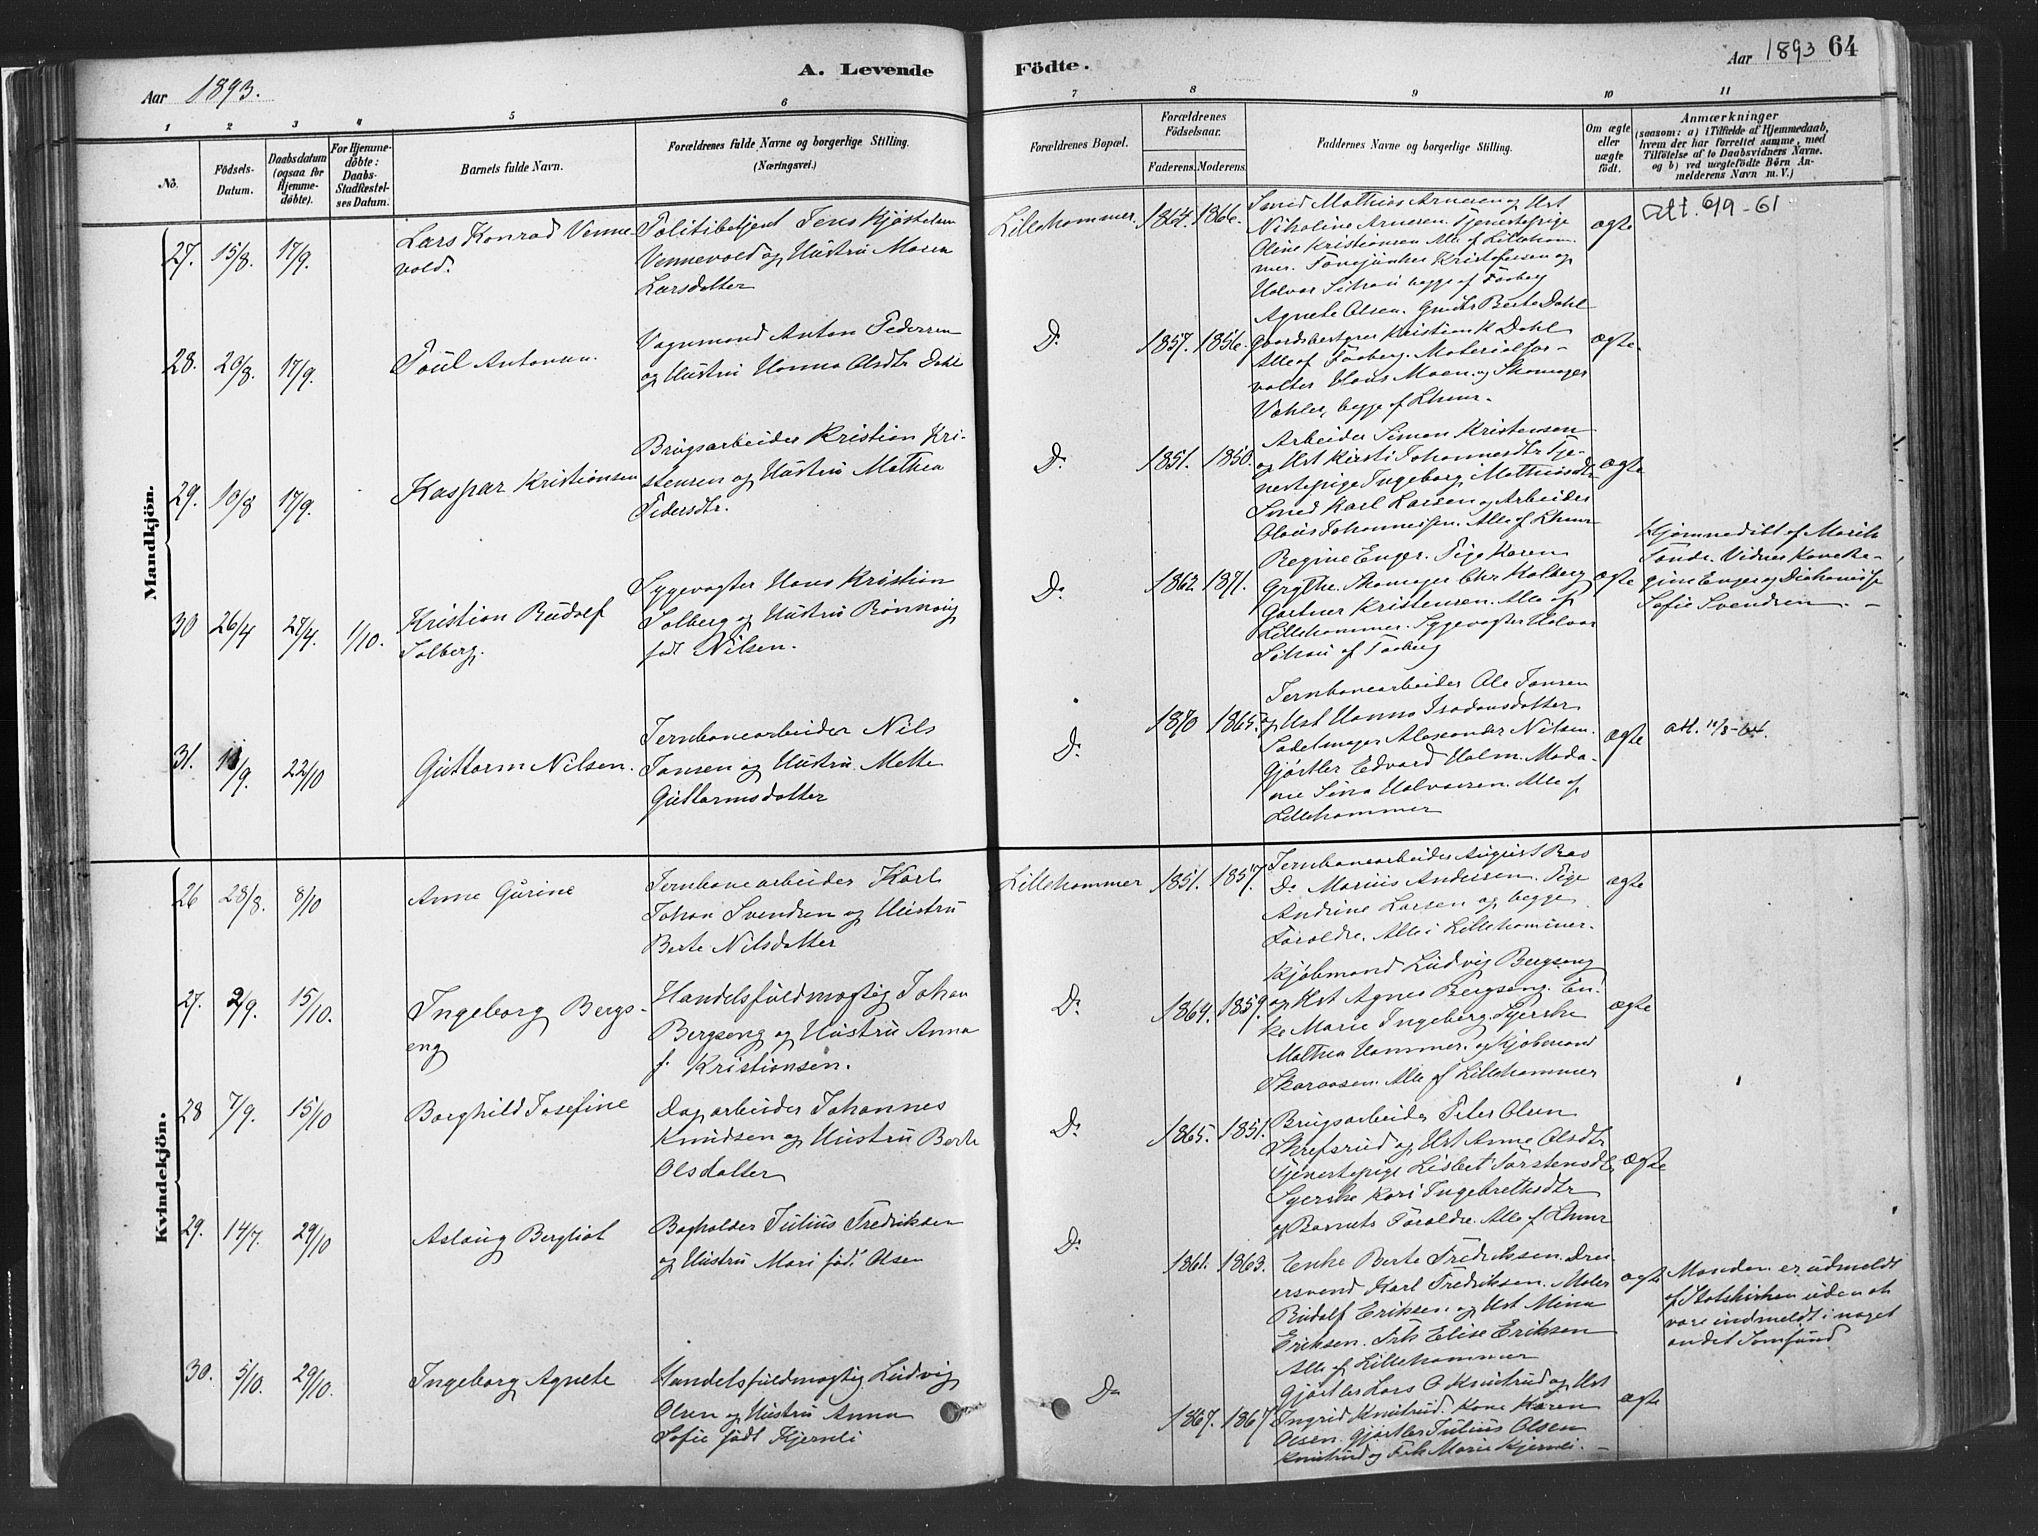 Aar 1893.
A. Levende
Födte.
Aar 1893
64
1
2
3
4
5
6
7
8
9
10
11
No.
Födsels-
Datum.
Daabsdatum
(ogsaa for
Hjemme-
döbte).
For Hjemme-
döbte:
Daabs-
Stadfæstel-
ses Datum.
Barnets fulde Navn.
Forældrenes fulde Navne og borgerlige Stilling.
(Næringsvei.)
Forældrenes Bopæl.
Forældrenes
Födselsaar.
Faderens.
Moderens.
Faddernes Navne og borgerlige Stilling.
Om ægte
eller
uægte
födt.
Anmærkninger
(saasom: a) i Tilfælde af Hjemmedaab,
hvem der har forrettet samme, med
Tilföielse af to Daabsvidners Navne.
og b) ved uægtefödte Börn An-
melderens Navn m. V.)
Mandkjön.
27. 15/8. 17/9.
Lars Konrad Venne-
vold.
Politibetjent Jens Kjøstelsen
Vennevold og Hustru Maren
Larsdatter
Lillehammer. 1864. 1866.
Smed Mathias Arnesen og Hst
Nikoline Arnesen. Tjenestepige
Oline Kristiansen Alle af Lilleham-
mer. Kristofersen og
Halvor begge af Faaberg
ægte
att. 6/9-61
28. 20/8. 17/9.
Poul Antonsen.
Vognmand Anton Pedersen
og Hustru Hanna Olsdtr Dahl
Do 1857. 1856.
Agnete Olsen. Berte Dahl
Gaardsbestyrer Kristian K Dahl
Alle af Faaberg. Materialfor-
valter Hans Moen og Skomager
Vøhler, begge af Lhmr.
ægte.
29. 10/8 17/9.
Kaspar Kristiansen
Brugsarbeider Kristian Kri-
stensen og Hustru Mathea
Pedersdtr.
Do 1851. 1850.
Arbeider Simon Kristensen
og Hst Kirsti Johannesdtr Tje-
nestepige Ingeborg Mathiasdtr
Smed Karl Larsen og Arbeider
Olaus Johannessen. Alle af Lhmr
ægte
30 26/4 27/4. 1/10.
Kristian Rudolf
Solberg.
Sygevogter Hans Kristian
Solberg og Hustru Rønnaug
født Nilsen.
Do 1862 1871.
Regine Enger. Pige Karen
Grythe. Skomager Chr Kolberg
Gartner Kristensen. Alle af
Lillehammer. Sygevogter Halvor
af Faaberg
ægte
Hjemmedøbt af Marit
Sande. Vidner Kone Re-
gine Enger og Diakonisse
Sofie Svendsen.
31. 11/9. 22/10
Guttorm Nilsen.
Jernbanearbeider Nils
Jansen og Hustru Mette
Guttormsdatter
Do 1870 1865.
Jernbanearbeider Ole Jansen
og Hst Hanna
Sadelmager Alexander Nilsen.
Gjørtler Edvard Holm. Mada-
me Sina Halvorsen. Alle af
Lillehammer
ægte
att. 10/8-64.
Kvindekjön.
26 28/8. 8/10
Anne Gurine
Jernbanearbeider Karl
Johan Svendsen og Hustru
Berte Nilsdatter
Lillehammer 1851. 1857.
Jernbanearbeider August Boo
Do Marius Andersen. Pige
Andrine Larsen og begge
Forældre. Alle i Lillehammer.
ægte
27. 2/9. 15/10.
Ingeborg Bergs-
eng
Handelsfuldmægtig Johan
Bergseng og Hustru Anna
f. Kristiansen.
Do 1864. 1859.
Kjøbmand Ludvig Bergseng
og Hst Agnes Bergseng. En-
ke Marie Ingeberg. Syerske
Mathea Hammer og Kjøbmand
Skaraasen. Alle af Lillehammer
ægte
28 7/9. 15/10
Borghild Josefine
Dagarbeider Johannes
Knudsen og Hustru Berte
Olsdatter
Do 1865. 1851.
Brugsarbeider Peter Olsen
Skrefsrud og Hst Anne Olsdtr
Tjenestepige Lisbet Torstensdtr
Syerske Kari Ingebrethsdtr
og Barnets Forældre. Alle af Lhmr
ægte
29. 14/7. 29/10
Aslaug Bergliot
Bogholder Julius Fredriksen
og Hustru Mari født Olsen
Do 1861. 1863.
Enke Berte Fredriksen. Drei-
ersvend Karl Fredriksen. Maler
Rudolf Eriksen og Hst Mina
Eriksen. Frk Elise Eriksen
Alle af Lillehammer
ægte
Manden er udmeldt
af Statskirken uden at
være indmeldt i noget
andet Samfund.
30. 5/10. 29/10.
Ingeborg Agnete
Handelsfuldmægtig Ludvig
Olsen og Hustru Anna
Sofie født Kjernli
Do 1867. 1867
Gjørtler Lars O Knutrud og Hst
Ingrid Knutrud. Kone Karen
Olsen. Gjørtler Julius Olsen
Knutrud og Frk Marie Kjernli.
ægte